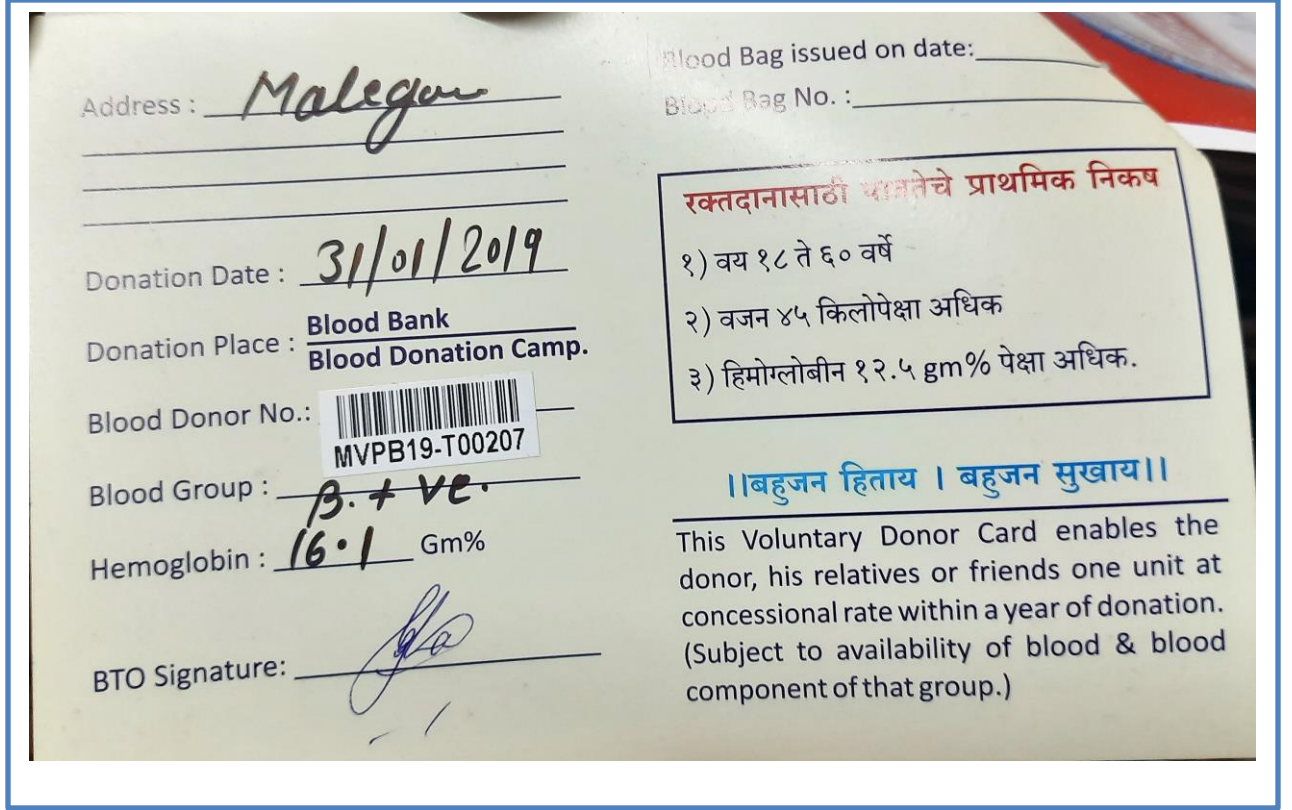 Address : Malegaon
Donation Date : 31/01/2019
Donation Place : Blood Bank
Blood Donation Camp.
Blood Donor No.:
MVPB19-T00207
Blood Group : B. + ve.
Hemoglobin : 16.1 Gm%
BTO Signature:
Blood Bag issued on date:
Blood Bag No. :
रक्तदानासाठी पात्रतेचे प्राथमिक निकष
१) वय १८ ते ६० वर्षे
२) वजन ४५ किलोपेक्षा अधिक
३) हिमोग्लोबीन १२.५ gm% पेक्षा अधिक.
।।बहुजन हिताय । बहुजन सुखाय।।
This Voluntary Donor Card enables the
donor, his relatives or friends one unit at
concessional rate within a year of donation.
(Subject to availability of blood & blood
component of that group.)